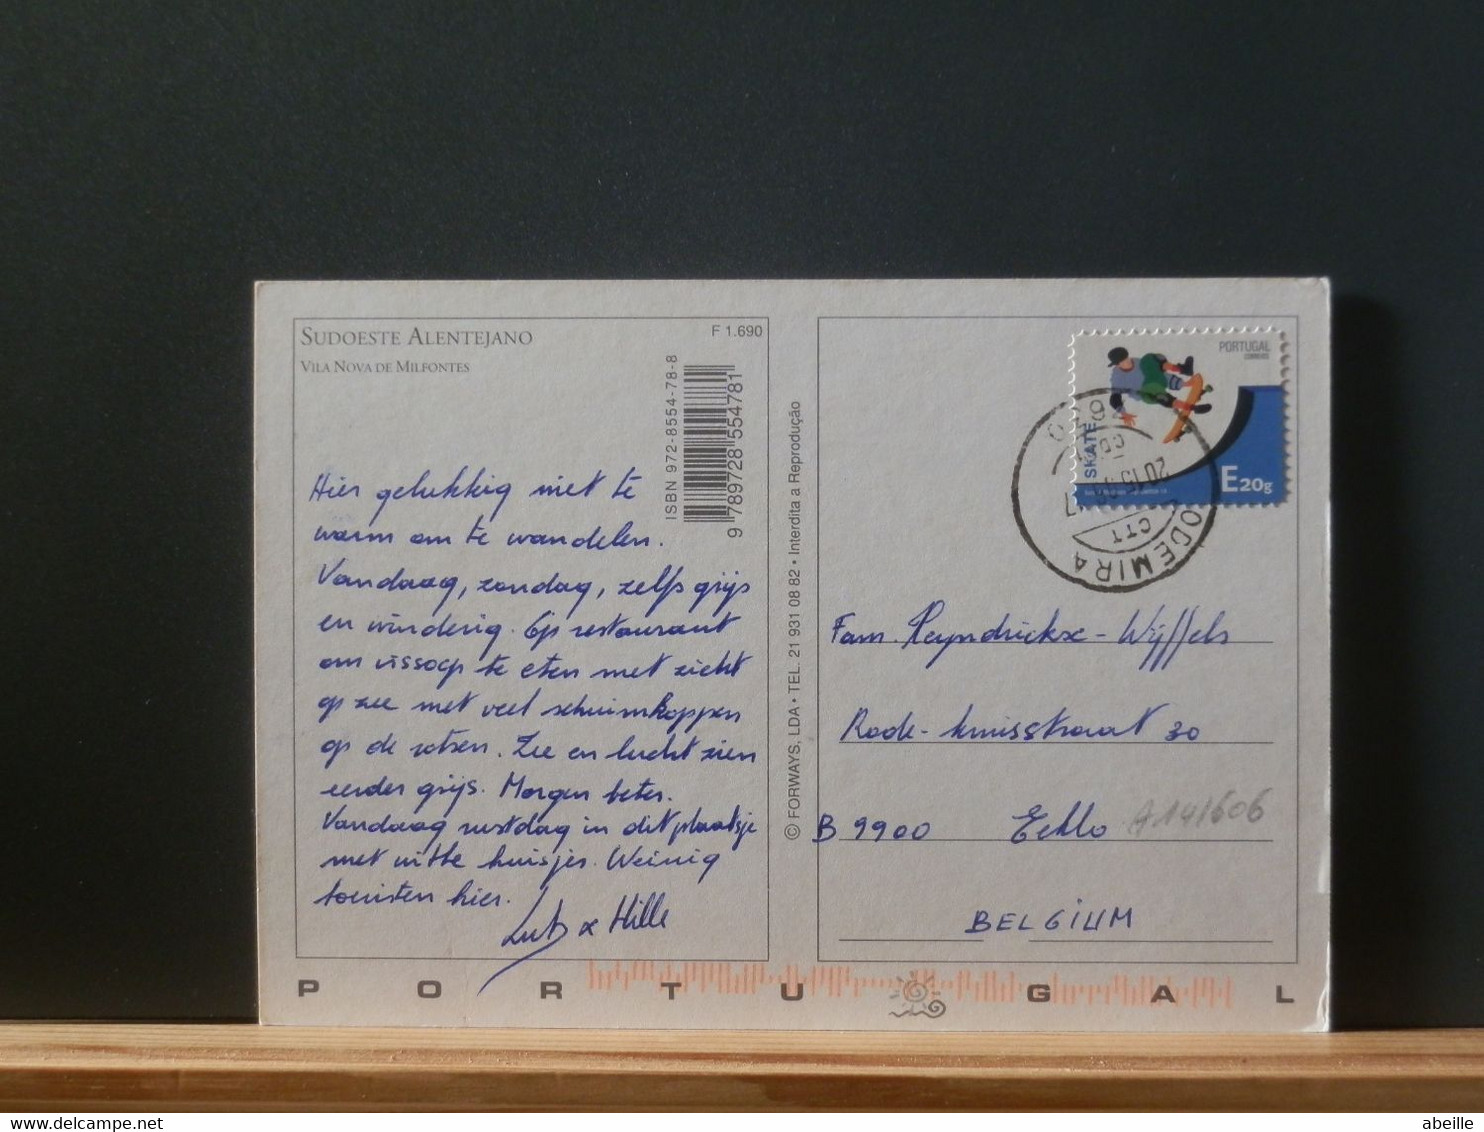 SUDOESTE ALENTEJANO
VILA NOVA DE MILFONTES
F 1.690
ISBN 972-8554-78-8
9 789728 554781
Hier gelukkig niet te
warm om te wandelen.
Vandaag, zondag, zelfs grijs
en winderig. Op restaurant
om vissoep te eten met zicht
op zee met veel schuimkoppen
op de rotsen. Zee en lucht zien
eerder grijs. Morgen beter.
Vandaag rustdag in dit plaatsje
met witte huisjes. Weinig
toeristen hier.
Hille
© FORWAYS, LDA • TEL. 21 931 08 82 • Interdita a Reprodução
PORTUGAL
CORREIOS
SKATE
E20g
ODEMIRA
CTT
Fam. Reyndrickx - Wijffels
Rode-kruisstraat 30
B 9900 Eeklo
A141606
BELGIUM
PORTUGAL
abeille